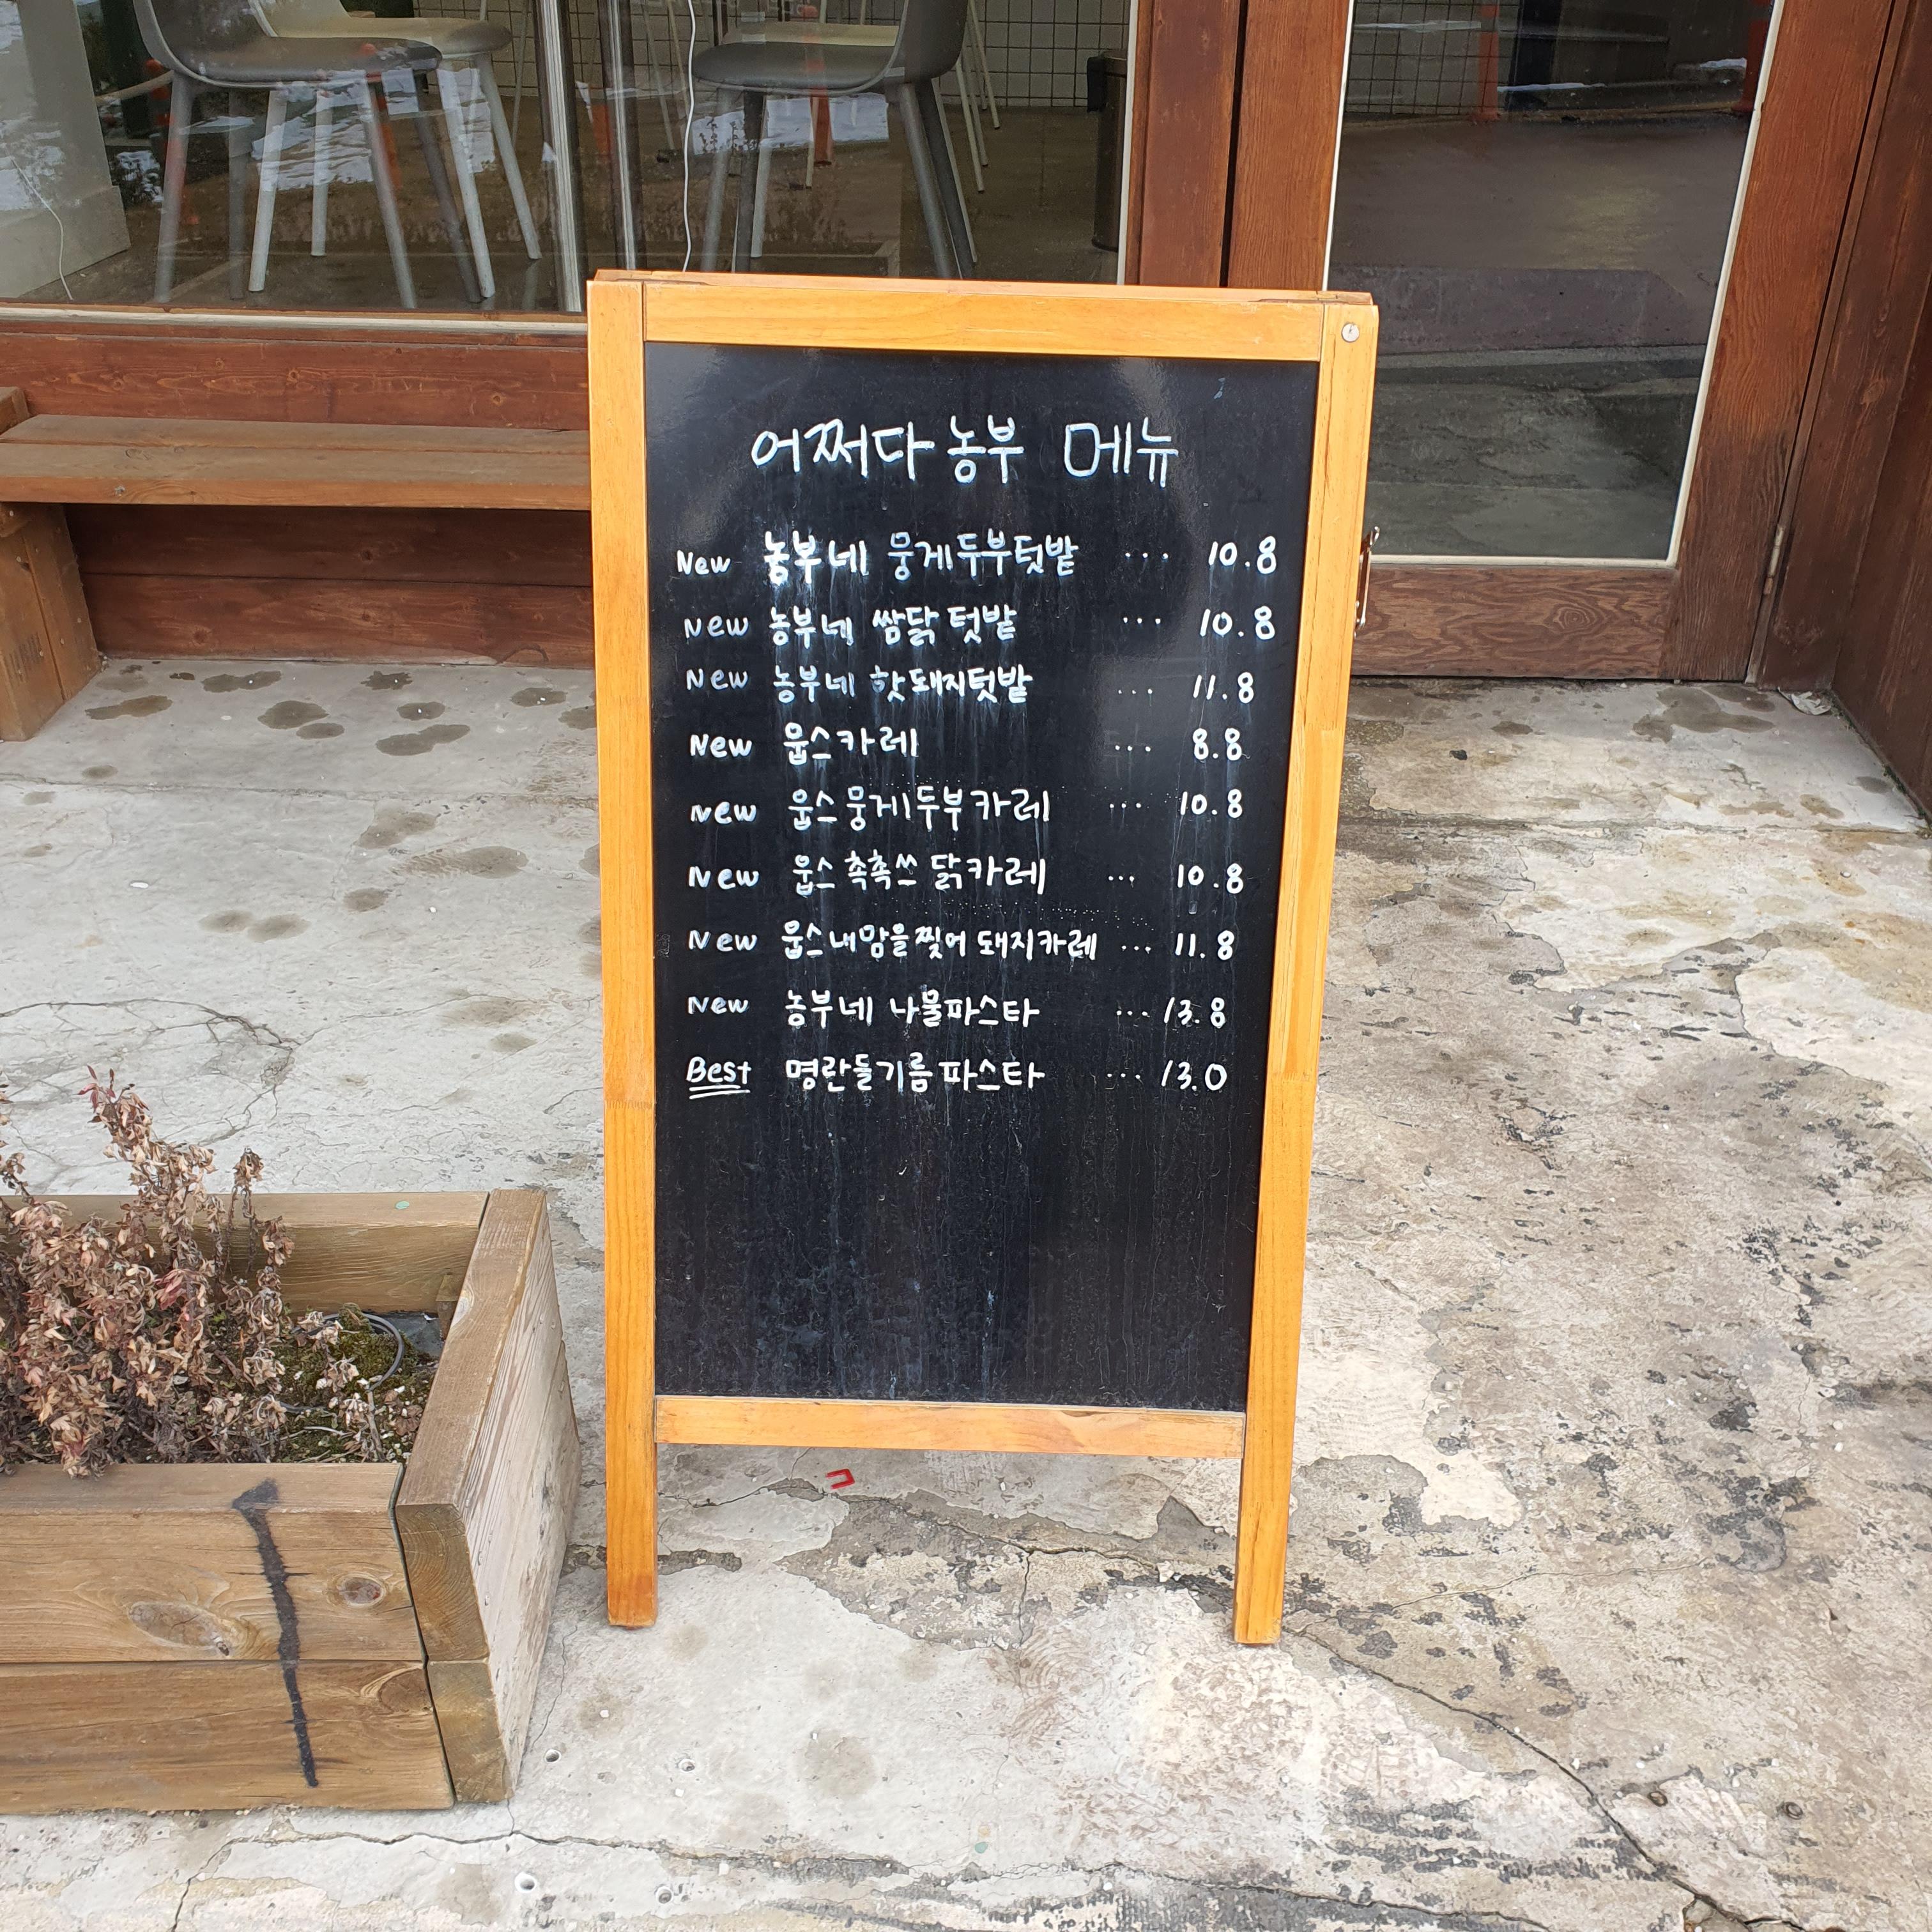 어쩌다 농부 메뉴
New 농부네 뭉게두부텃밭 ... 10.8
New 농부네 쌈닭 텃밭 ... 10.8
New 농부네 핫돼지텃밭 ... 11.8
New 웁스카레 ... 8.8
New 웁스 뭉게두부카레 ... 10.8
New 웁스 촉촉쓰 닭카레 ... 10.8
New 웁스내맘을찢어 돼지카레 ... 11.8
New 농부네 나물파스타 ... 13.8
Best 명란들기름파스타 ... 13.0